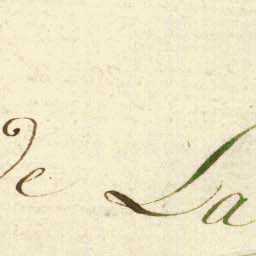 de La